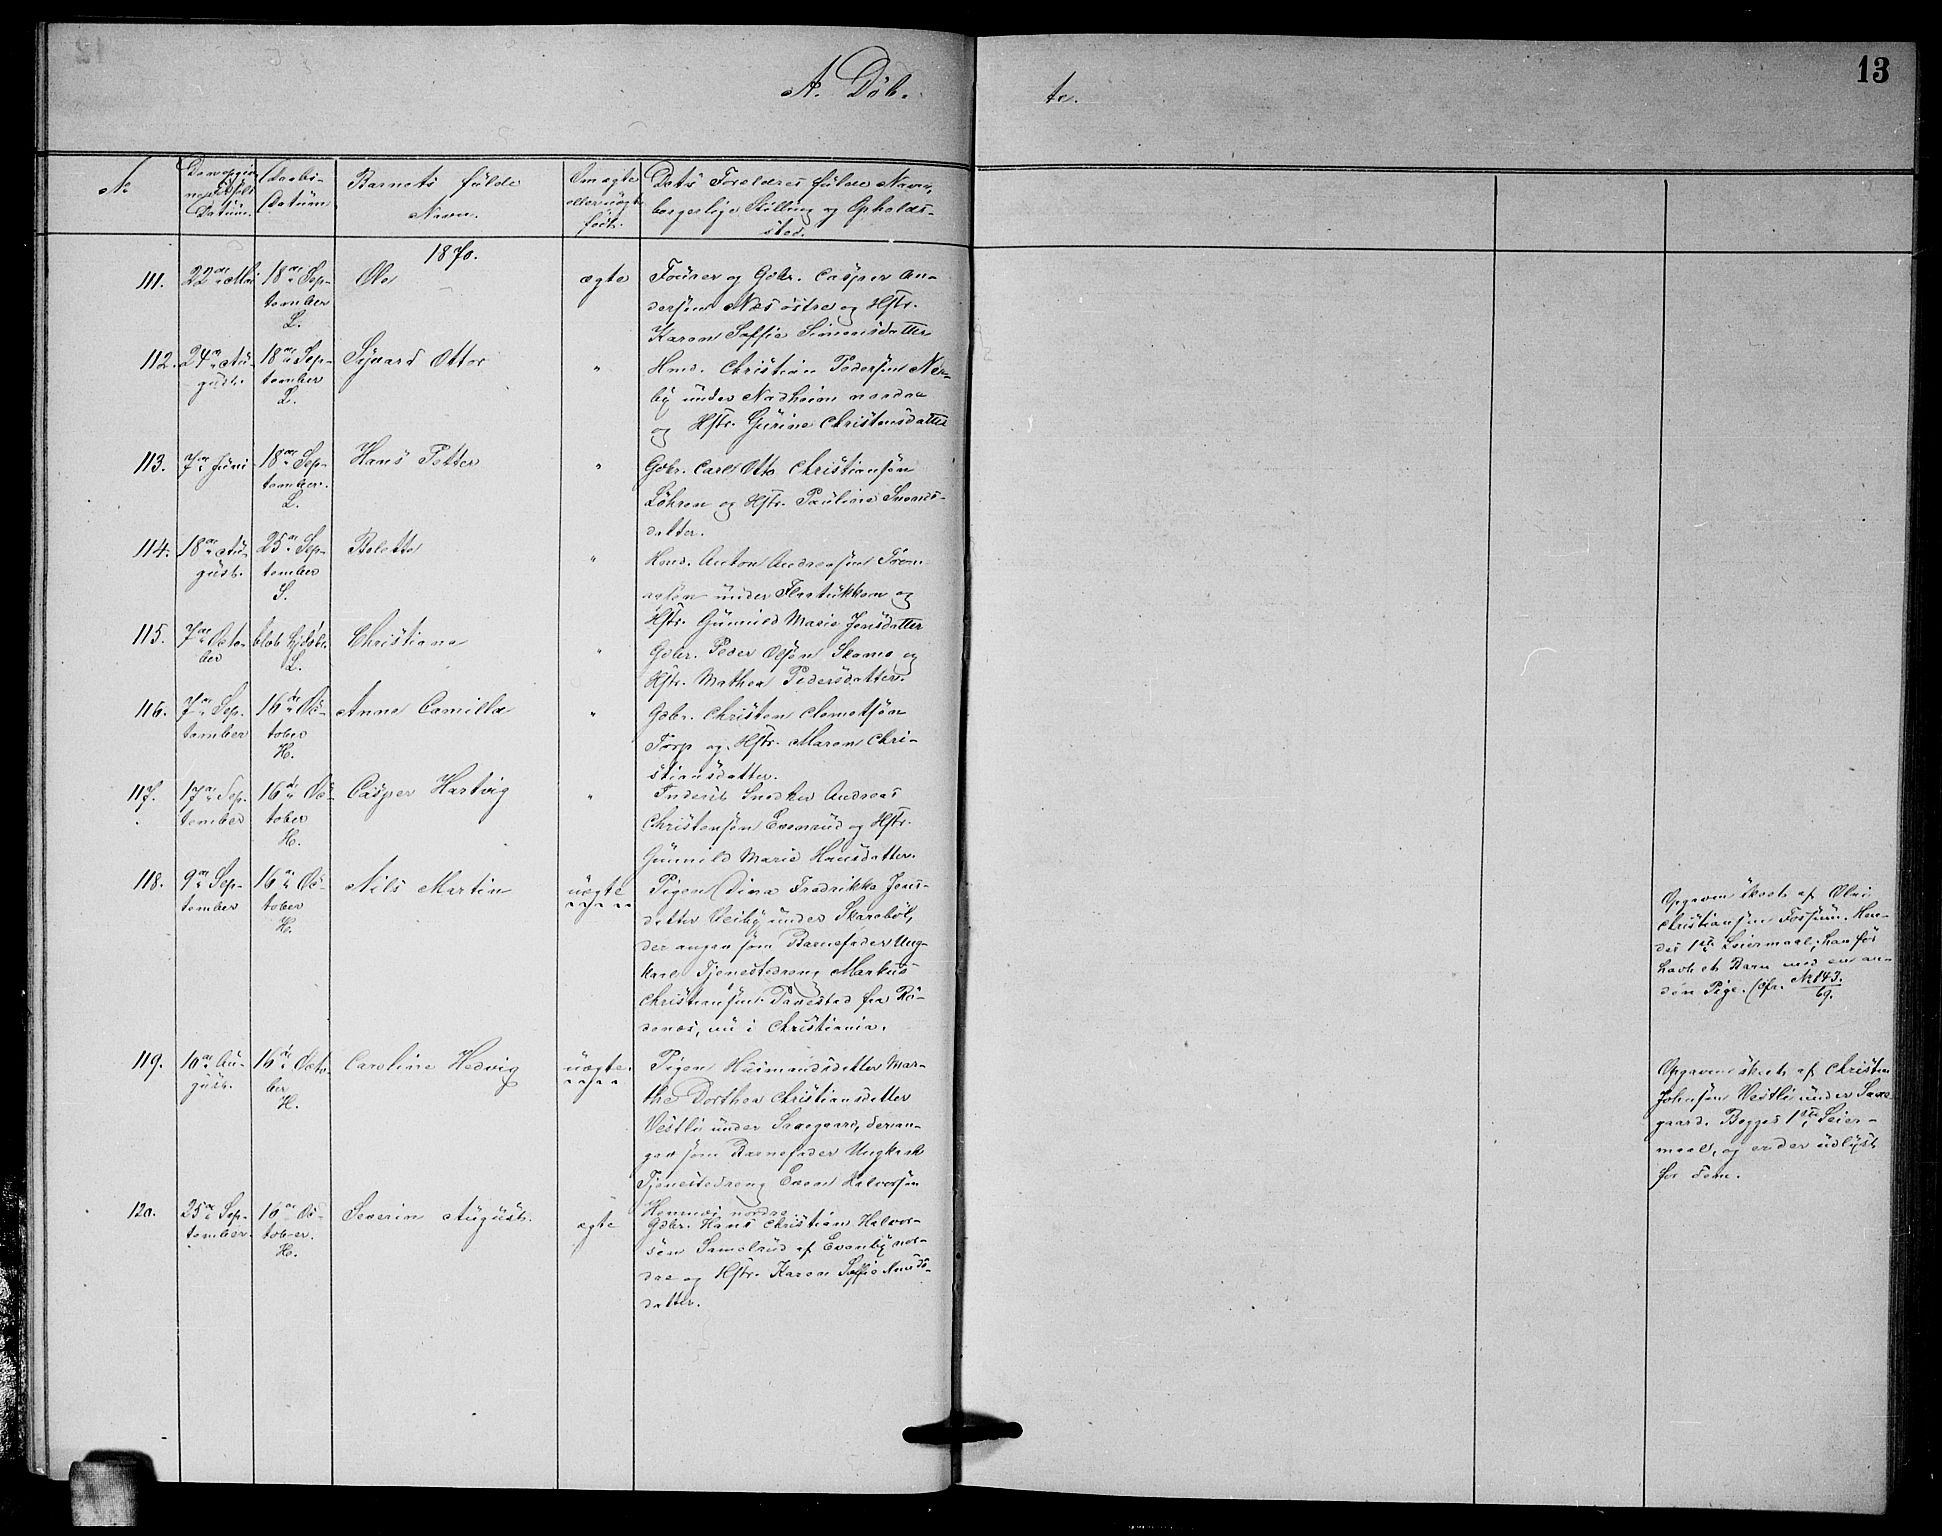 A. Døb. te. 13
No
Datum.
Daabs-
Datum
Barnets fulde
Navn.
Om ægte
eller uægte
født.
Dets Forældres fulde Navn,
borgerlige Stilling og Opholds-
sted.
1870.
111. 22de Mai 18de Sep-
tember
L.
Ole
ægte
og Gbr. Casper An-
dersøn Næs østre og Hstr.
Karen Soffie Simensdatter
112. 24de Au-
gust.
18de Sep-
tember
L.
Sigvard Otter
"
Hmd. Christian Pedersøn
by under Nadheim nordre
og Hstr. Gurine Christensdatter
113. 7de Juni
18de Sep-
tember.
L.
Hans Petter
"
Gbr. Carl Otto Christiansøn
Løkren og Hstr. Pauline
datter.
114. 18de Au-
gust.
25de Sep-
tember
S.
Bolette
"
Hmd. Anton Andreasøn
under og
Hstr. Gunnild Marie Jensdatter
115. 7de Octo-
ber
blev hjdøbt.
L.
Christiane
"
Gbr. Peder Olsøn og
Hstr. Mathea Pedersdatter.
116. 7de Sep-
tember
16de Oc-
tober
H.
Anne Camilla
"
Gbr. Christen Clemetsøn
Torp og Hstr. Maren Chri-
stiansdatter.
117. 17de Sep-
tember
16de Oc-
tober
H.
Casper Hartvig
"
Inderst Snedker Andreas
Christensøn Evenrud og Hstr.
Gunnild Marie Hansdatter.
118. 9de Sep-
tember
16de Oc-
tober
H.
Nils Martin
uægte
Pigen Dina Fredrikke Jens-
datter Veiby under Skarebøl,
der angav som Barnefader Ung-
karl Tjenestedreng Markus
Christiansøn Tanestad fra Rø-
denæs, nu i Christiania.
Opgaven skeet af Olai
Christiansøn Fossum. Hen-
des 1ste Leiermaal; han før
havt et Barn med en an-
den Pige. Cfr. No 143.
69.
119. 16de Au-
gust.
16de Octo-
ber
H.
Caroline Hedvig
uægte.
Pigen Husmandsdatter Mar-
the Dorthea Christiansdatter
Vestli under Saxegaard, der an-
gav som Barnefader Ungkarl
Tjenestedreng Even Halvorsøn
Hemnæs nordre.
Opgaven skeet af Christen
Johnsøn Vestli under Saxe-
gaard. Begges 1ste Leier-
maal, og er der udlyst
for dem.
120. 25de Sep-
tember.
16de Oc-
tober.
H.
Severin August.
ægte
Gbr. Hans Christian Halvor-
søn Samelrud af Evenby nor-
dre og Hstr. Karen Soffie
datter.